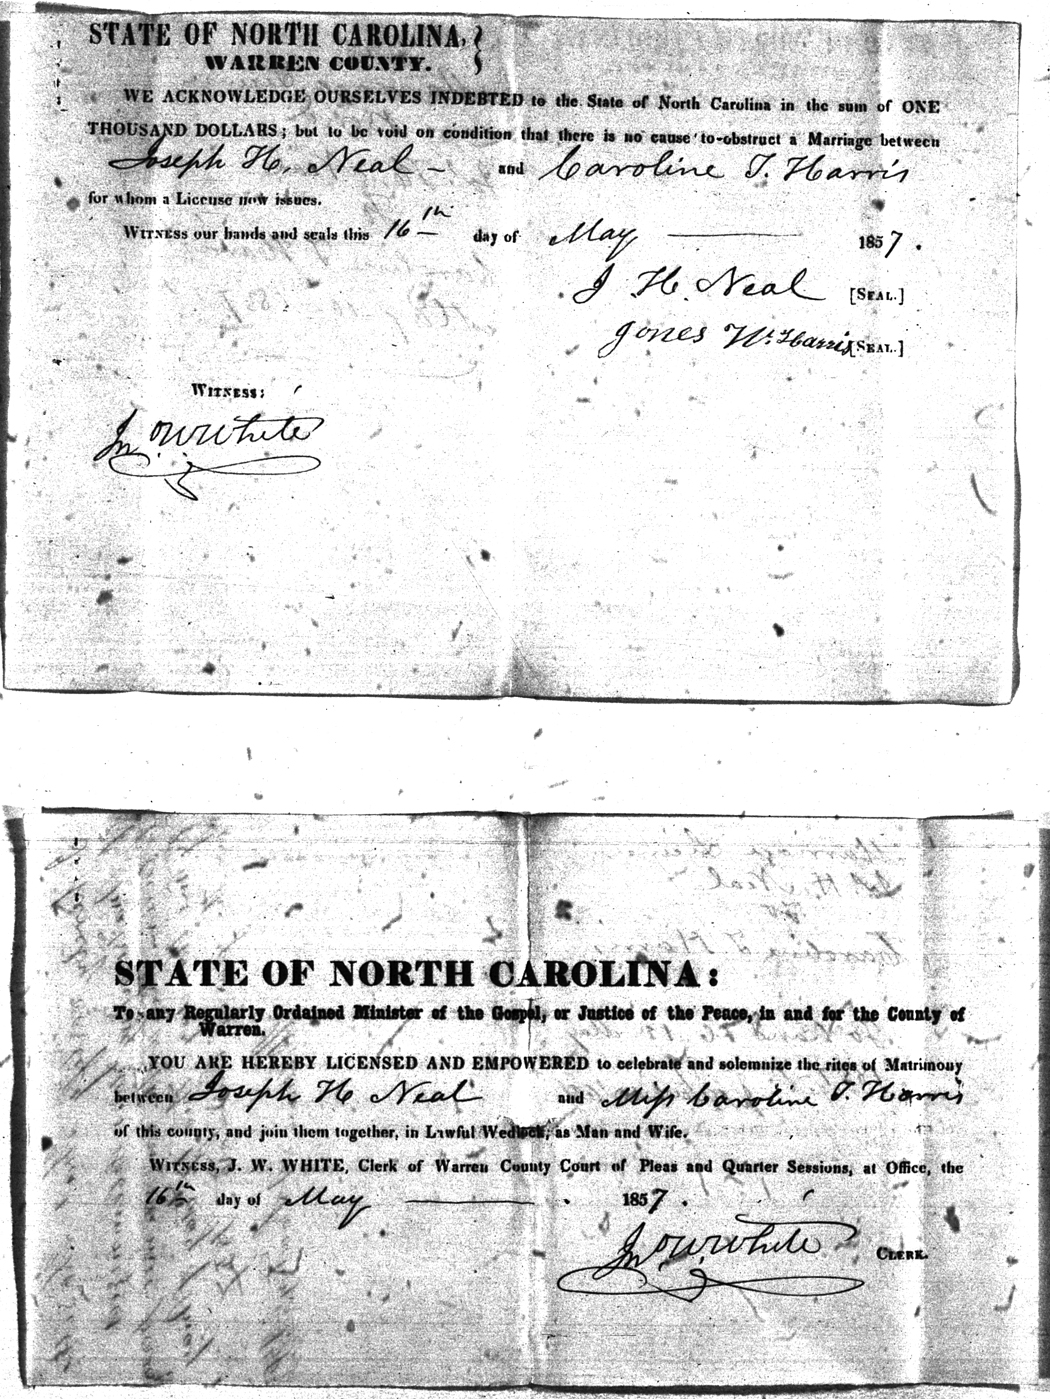 STATE OF NORTH CAROLINA,
WARREN COUNTY.
WE ACKNOWLEDGE OURSELVES INDEBTED to the State of North Carolina in the sum of ONE
THOUSAND DOLLARS; but to be void on condition that there is no cause to obstruct a Marriage between
Joseph H. Neal - and Caroline T. Harris
for whom a License now issues.
WITNESS our hands and seals this 16th day of May 1857.
J. H. Neal [SEAL.]
Jones W. Harris [SEAL.]
WITNESS:
Jno. W. White
STATE OF NORTH CAROLINA:
To any Regularly Ordained Minister of the Gospel, or Justice of the Peace, in and for the County of
Warren.
YOU ARE HEREBY LICENSED AND EMPOWERED to celebrate and solemnize the rites of Matrimony
between Joseph H Neal and Miss Caroline T. Harris
of this county, and join them together, in Lawful Wedlock, as Man and Wife.
WITNESS, J. W. WHITE, Clerk of Warren County Court of Pleas and Quarter Sessions, at Office, the
16th day of May 1857.
Jno. W. White CLERK.